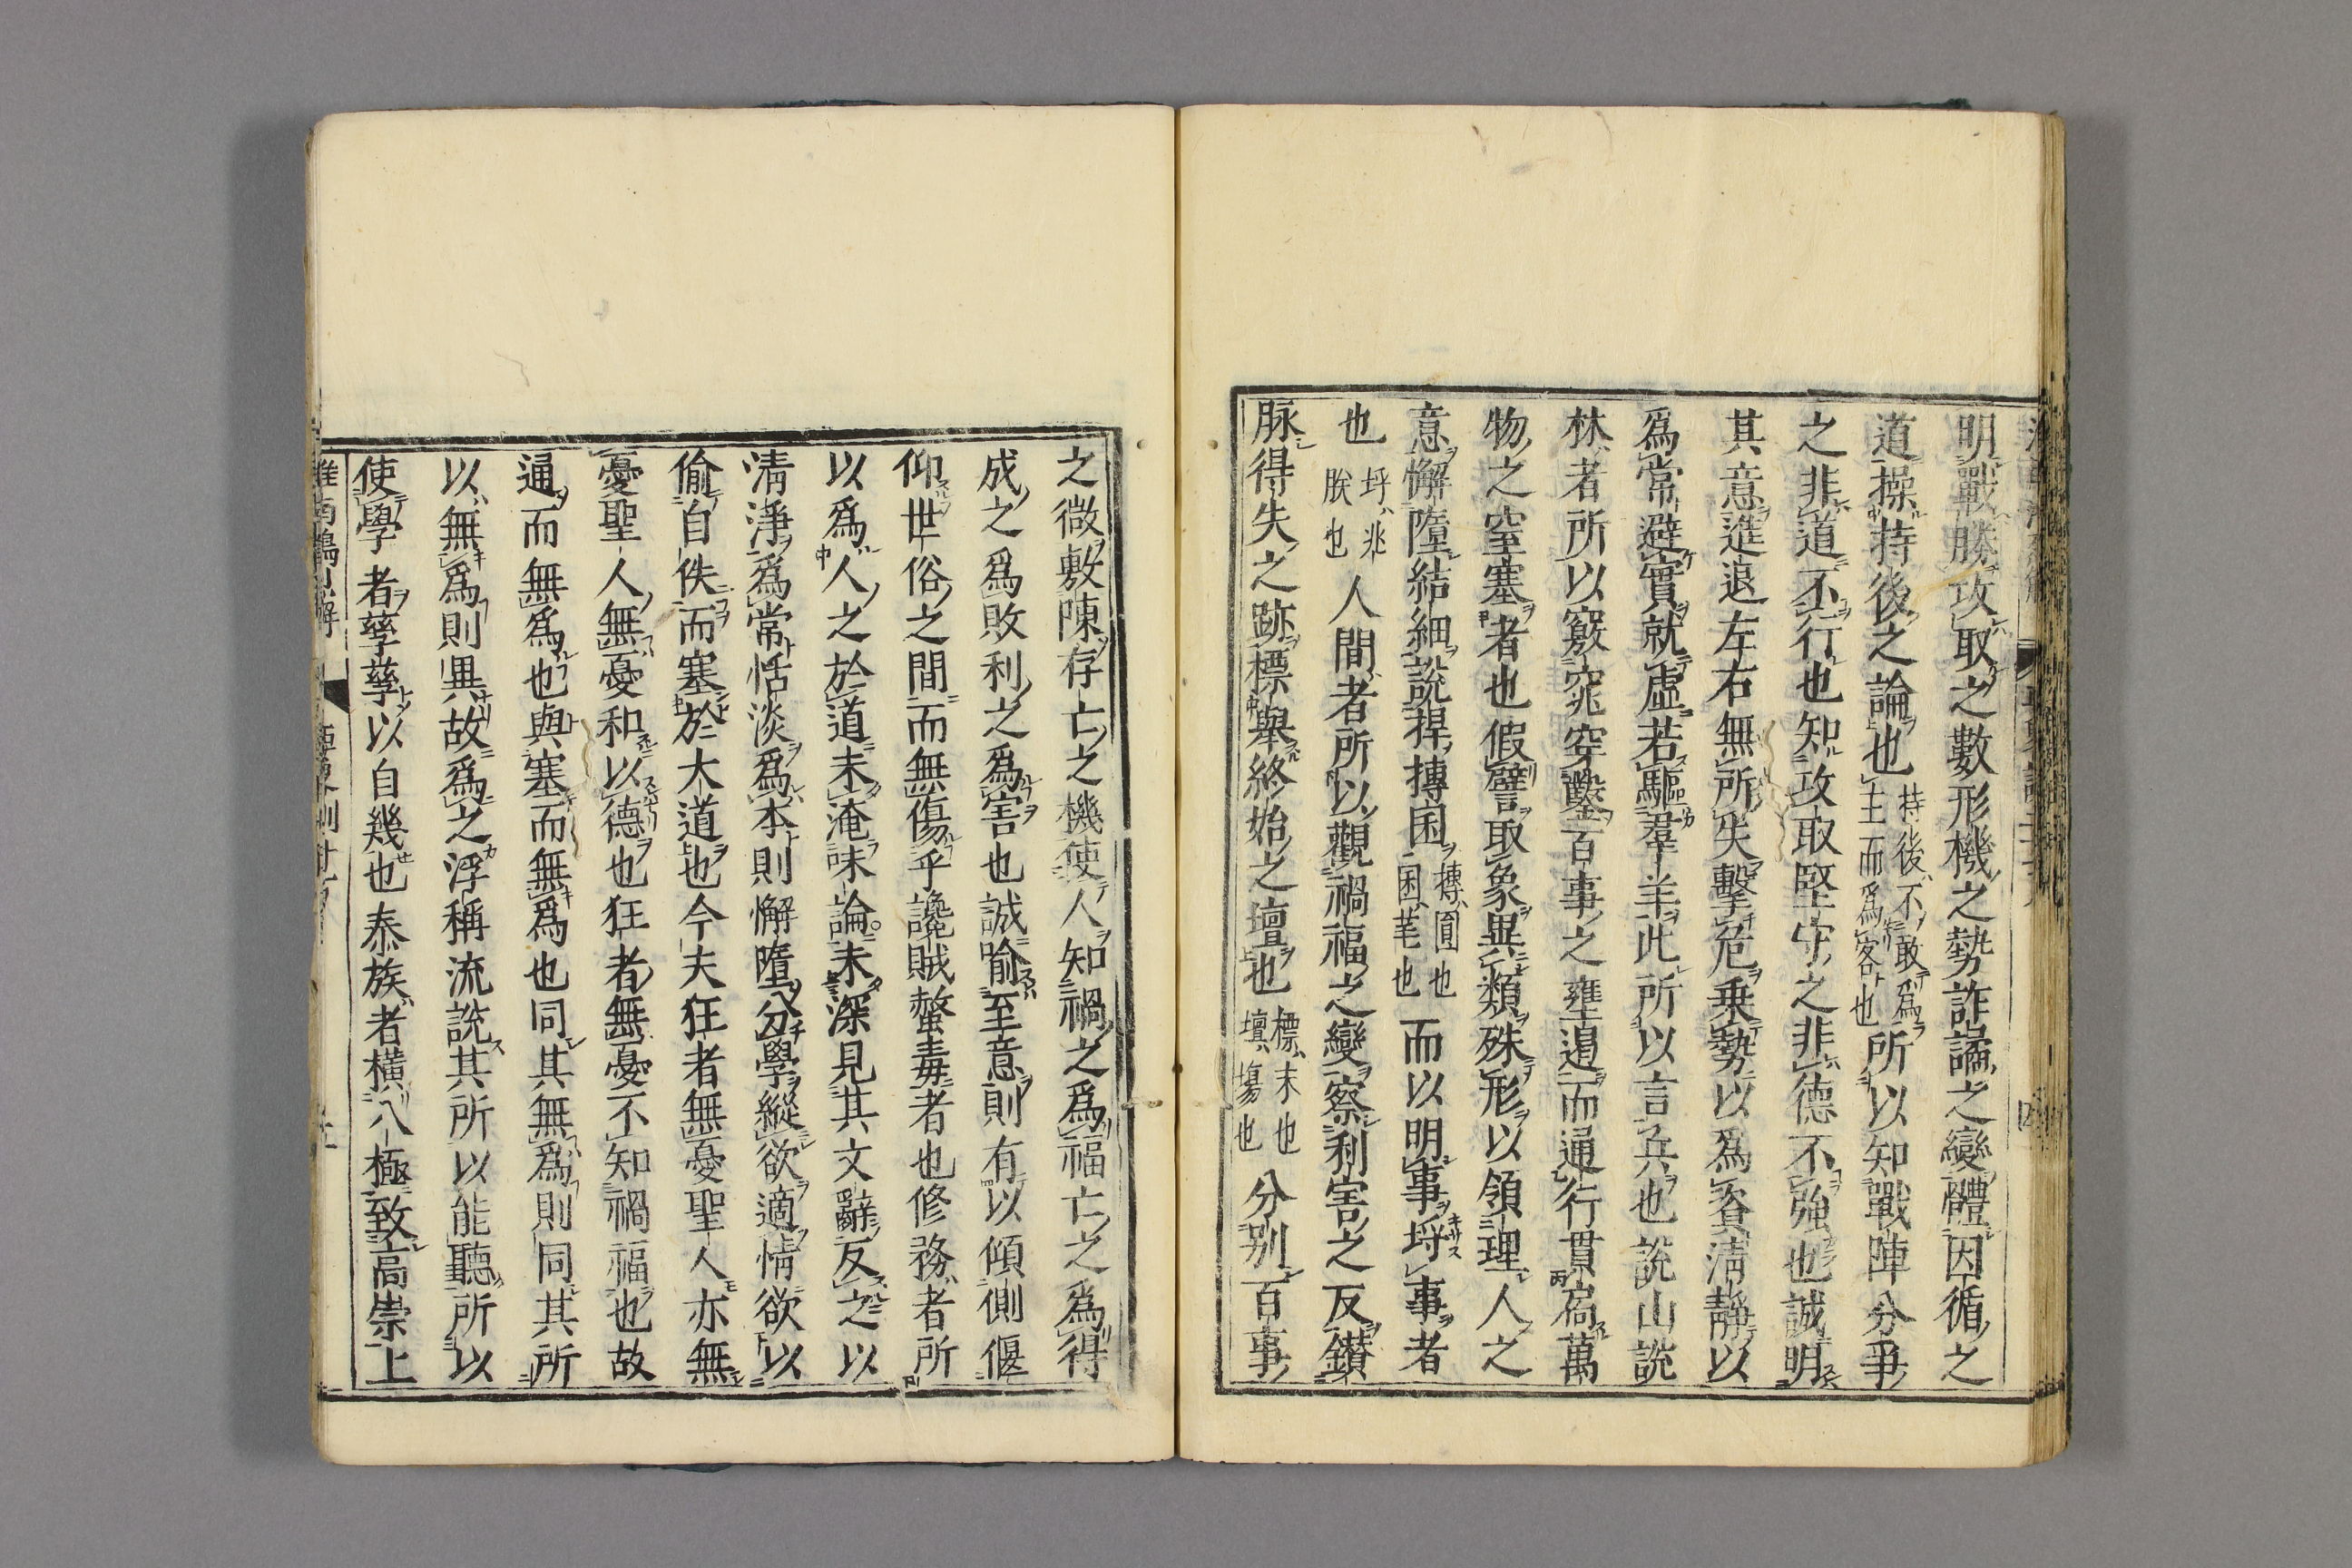 明戰勝攻取之數形機之勢詐譎之變體因循之
道操持後之論也持後不敢爲主而爲客也所以知戰陣分爭
之非道不行也知攻取堅守之非德不強也誠明
其意進退左右無所失擊危乗勢以爲資淸靜以
爲常避實就虛若驅羣羊此所以言兵也說山說
林者所以竅窕穿鑿百事之壅遏而通行貫扃萬
物之窒塞者也假譬取象異類殊形以領理人之
意懈墮結細說捍摶囷摶圓也囷芼也而以明事埒事者
也埒兆朕也人間者所以觀禍福之變察利害之反鑚
脉得失之跡標舉終始之壇也標末也壇塲也分别百事
之微敷陳存亡之機使人知禍之爲福亡之爲得
成之爲敗利之爲害也誠喻至意則有以傾側偃
仰世俗之間而無傷乎讒賊螫毒者也修務者所
以爲人之於道未淹味論未深見其文辭反之以
淸淨爲常恬淡爲本則懈墮分學縱欲適情欲以
偷自佚而塞於大道也今夫狂者無憂聖人亦無
憂聖人無憂和以德也狂者無憂不知禍福也故
通而無爲也與塞而無爲也同其無爲則同其所
以無爲則異故爲之浮稱流說其所以能聽所以
使學者孳孳以自幾也泰族者橫八極致高崇上